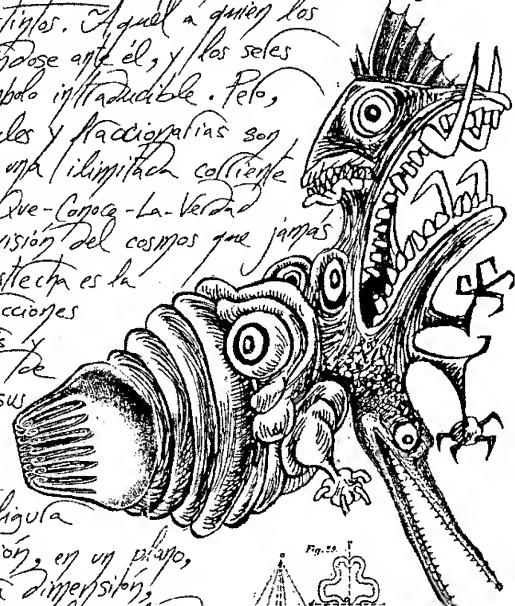 tintos. Aquél a quien los
ndose ante él, y los seres
mbolo intraducible. Pero,
ales y fraccionarias son
una ilimitada corriente
Que-Conoce-La-Verdad
visión del cosmos que jamás
estrecha es la
cciones
s y
de
sus
figura
ón, en un plano,
a dimensión,
Fig. 29.